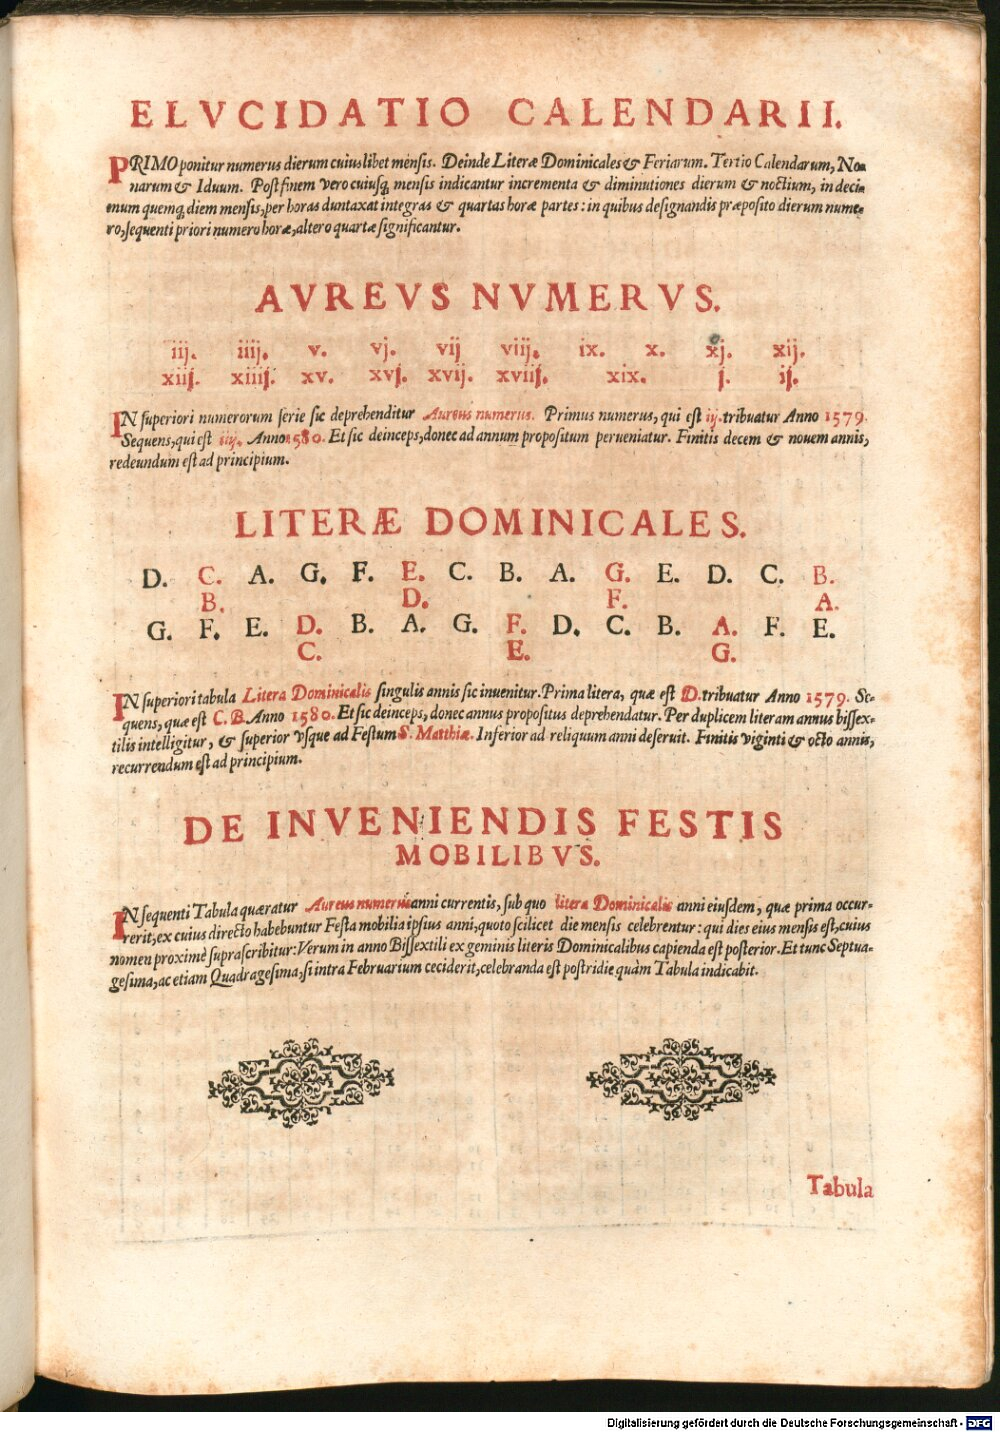 ELVCIDATIO CALENDARII.
PRIMO ponitur numerus dierum cuiuslibet mensis. Deinde Literæ Dominicales & Feriarum. Tertio Calendarum, No-
narum & Iduum. Post finem vero cuiusq; mensis indicantur incrementa & diminutiones dierum & noctium, in deci-
mum quemq; diem mensis, per horas duntaxat integras & quartas horæ partes: in quibus designandis præposito dierum nume-
ro, sequenti priori numero horæ, altero quartæ significantur.
AVREVS NVMERVS.
iij. iiij. v. vj. vij viij. ix. x. xj. xij.
xiij. xiiij. xv. xvj. xvij. xviij. xix. j. ij.
IN superiori numerorum serie sic deprehenditur Aureus numerus. Primus numerus, qui est iij. tribuatur Anno 1579.
Sequens, qui est iiij. Anno 1580. Et sic deinceps, donec ad annum propositum perueniatur. Finitis decem & nouem annis,
redeundum est ad principium.
LITERÆ DOMINICALES.
D. C. A. G. F. E. C. B. A. G. E. D. C. B.
B. D. F. A.
G. F. E. D. B. A. G. F. D. C. B. A. F. E.
C. E. G.
IN superiori tabula Litera Dominicalis singulis annis sic inuenitur. Prima litera, quæ est D. tribuatur Anno 1579. Se-
quens, quæ est C. B. Anno 1580. Et sic deinceps, donec annus propositus deprehendatur. Per duplicem literam annus bissex-
tilis intelligitur, & superior vsque ad Festum S. Matthiæ. Inferior ad reliquum anni deseruit. Finitis viginti & octo annis,
recurrendum est ad principium.
DE INVENIENDIS FESTIS
MOBILIBVS.
IN sequenti Tabula quæratur Aureus numerus anni currentis, sub quo litera Dominicalis anni eiusdem, quæ prima occur-
rerit, ex cuius directo habebuntur Festa mobilia ipsius anni, quoto scilicet die mensis celebrentur: qui dies eius mensis est, cuius
nomen proximè suprascribitur: Verum in anno Bissextili ex geminis literis Dominicalibus capienda est posterior. Et tunc Septua-
gesima, ac etiam Quadragesima, si intra Februarium ceciderit, celebranda est postridie quàm Tabula indicabit.
Tabula
Digitalisierung gefördert durch die Deutsche Forschungsgemeinschaft - DFG